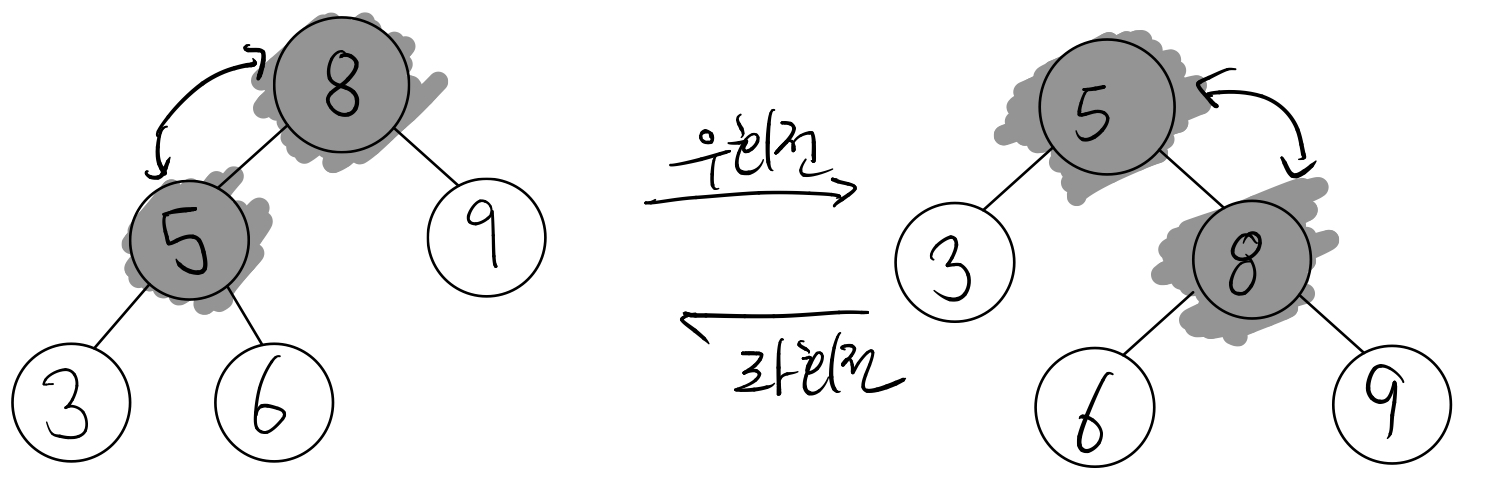 8
5
9
3
6
우회전
좌회전
5
3
8
6
9